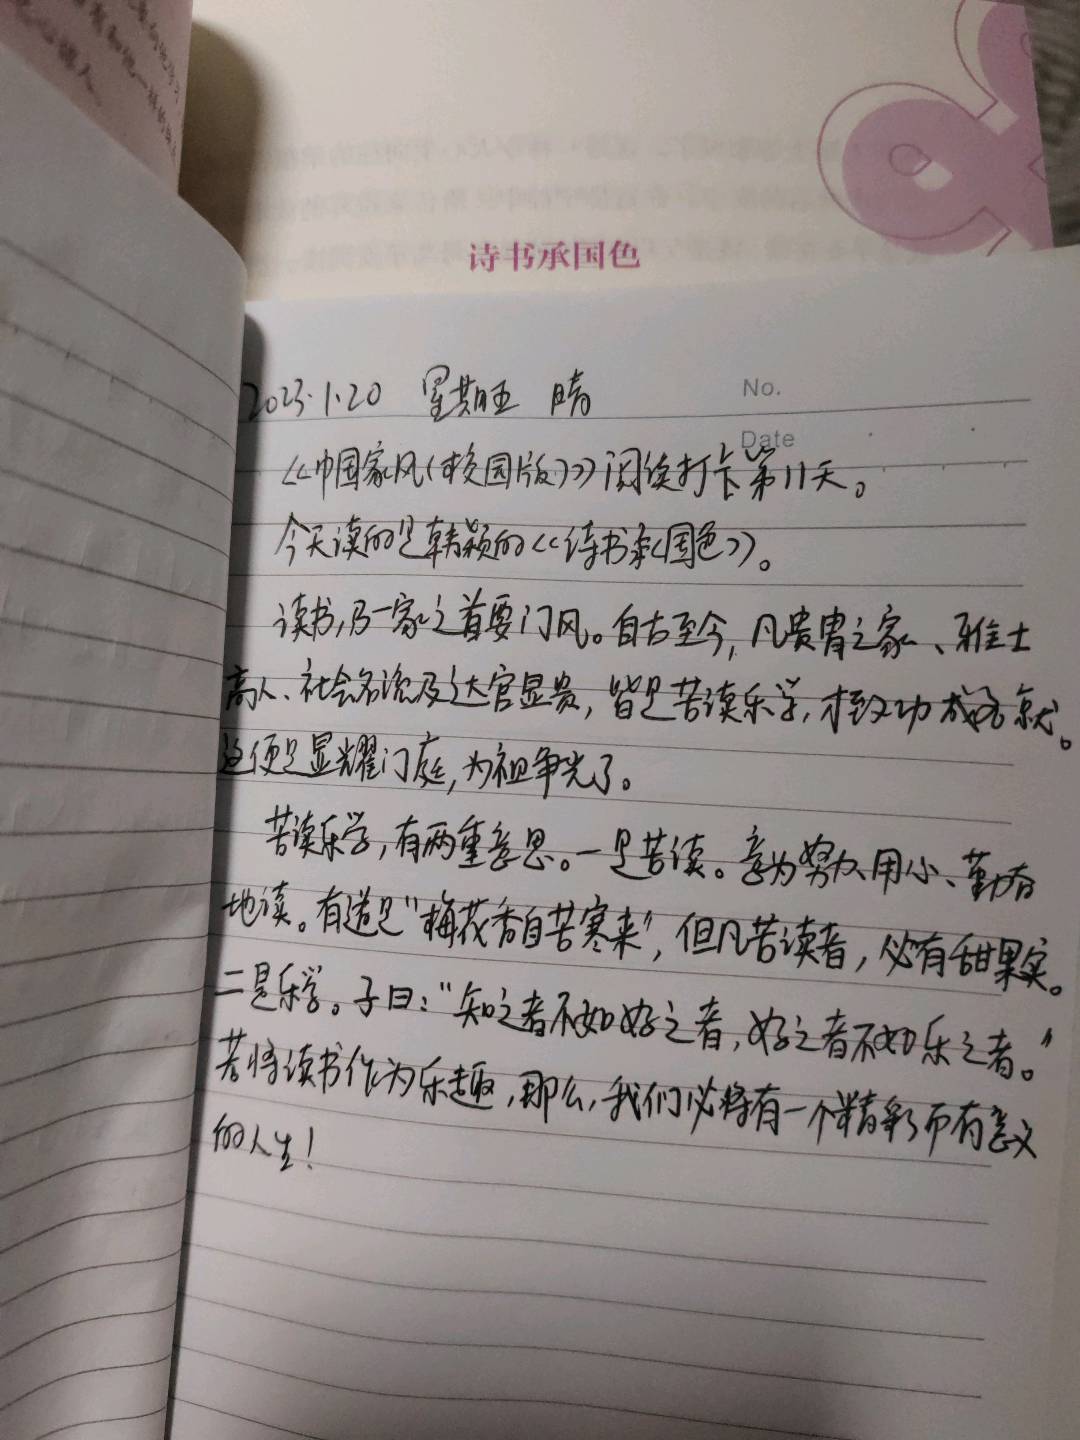 诗书承国色
No.
Date
2023.1.20 星期五 晴
《中国家风(校园版)》阅读打卡第11天。
今天读的是韩颖的《诗书承国色》。
读书,乃一家之首要门风。自古至今,凡贵胄之家、雅士
高人、社会名流及达官显贵,皆是苦读乐学,才致功成名就。
这便是显耀门庭,为祖争光了。
苦读乐学,有两重意思。一是苦读。意为努力、用心、勤奋
地读。有道是"梅花香自苦寒来",但凡苦读者,必有甜果实。
二是乐学。子曰:"知之者不如好之者,好之者不如乐之者。"
若将读书作为乐趣,那么,我们必将有一个精彩而有意义
的人生!